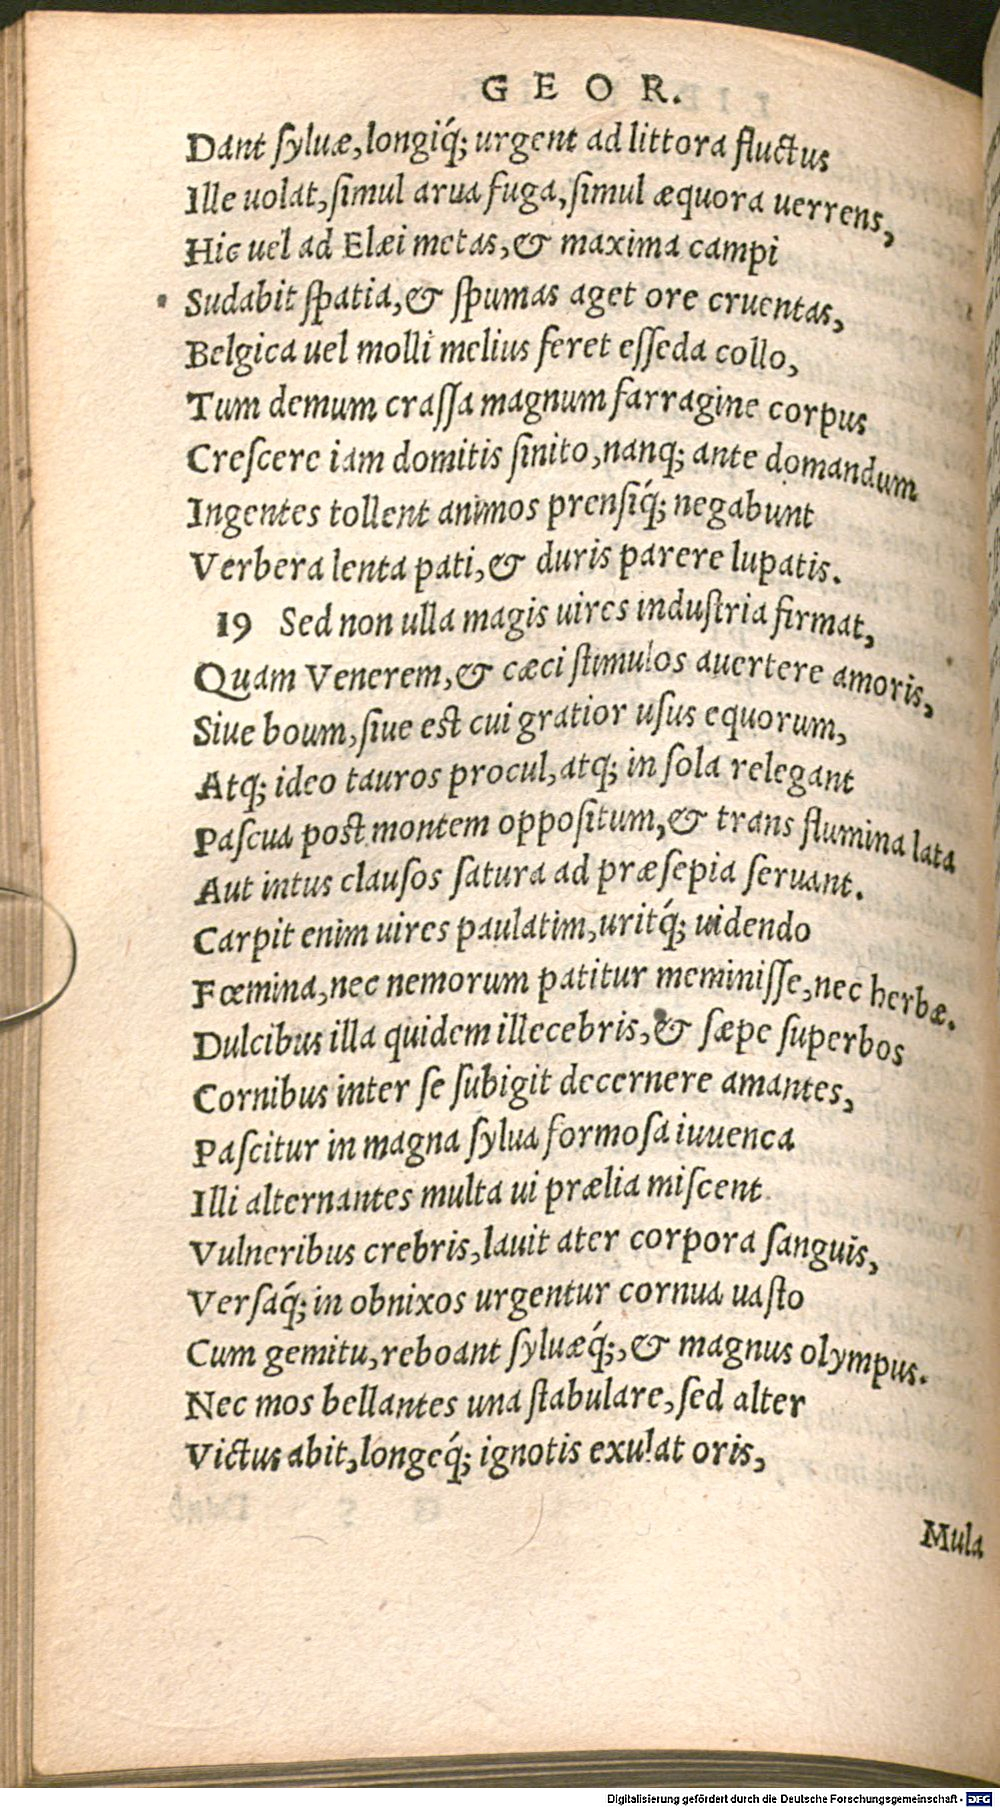 GEOR.
Dant ſyluæ, longiq́; urgent ad littora fluctus
Ille uolat, ſimul arua fuga, ſimul æquora uerrens,
Hic uel ad Elæi metas, & maxima campi
Sudabit ſpatia, & ſpumas aget ore cruentas,
Belgica uel molli melius feret eſſeda collo,
Tum demum craſſa magnum farragine corpus
Creſcere iam domitis ſinito, nanq; ante domandum
Ingentes tollent animos prenſiq́; negabunt
Verbera lenta pati, & duris parere lupatis.
19 Sed non ulla magis uires induſtria firmat,
Quam Venerem, & cæci ſtimulos auertere amoris,
Siue boum, ſiue eſt cui gratior uſus equorum,
Atq; ideo tauros procul, atq; in ſola relegant
Paſcua poſt montem oppoſitum, & trans flumina lata
Aut intus clauſos ſatura ad præſepia ſeruant.
Carpit enim uires paulatim, uritq́; uidendo
Fœmina, nec nemorum patitur meminiſſe, nec herbæ.
Dulcibus illa quidem illecebris, & ſæpe ſuperbos
Cornibus inter ſe ſubigit decernere amantes,
Paſcitur in magna ſylua formoſa iuuenca
Illi alternantes multa ui prælia miſcent
Vulneribus crebris, lauit ater corpora ſanguis,
Verſaq́; in obnixos urgentur cornua uaſto
Cum gemitu, reboant ſyluæq́;, & magnus olympus.
Nec mos bellantes una ſtabulare, ſed alter
Victus abit, longeq́; ignotis exulat oris,
Mula
Digitalisierung gefördert durch die Deutsche Forschungsgemeinschaft - DFG